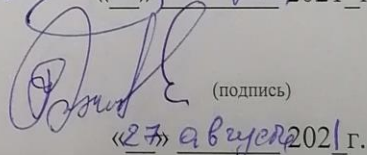 (подпись)
«27» августа 2021 г.